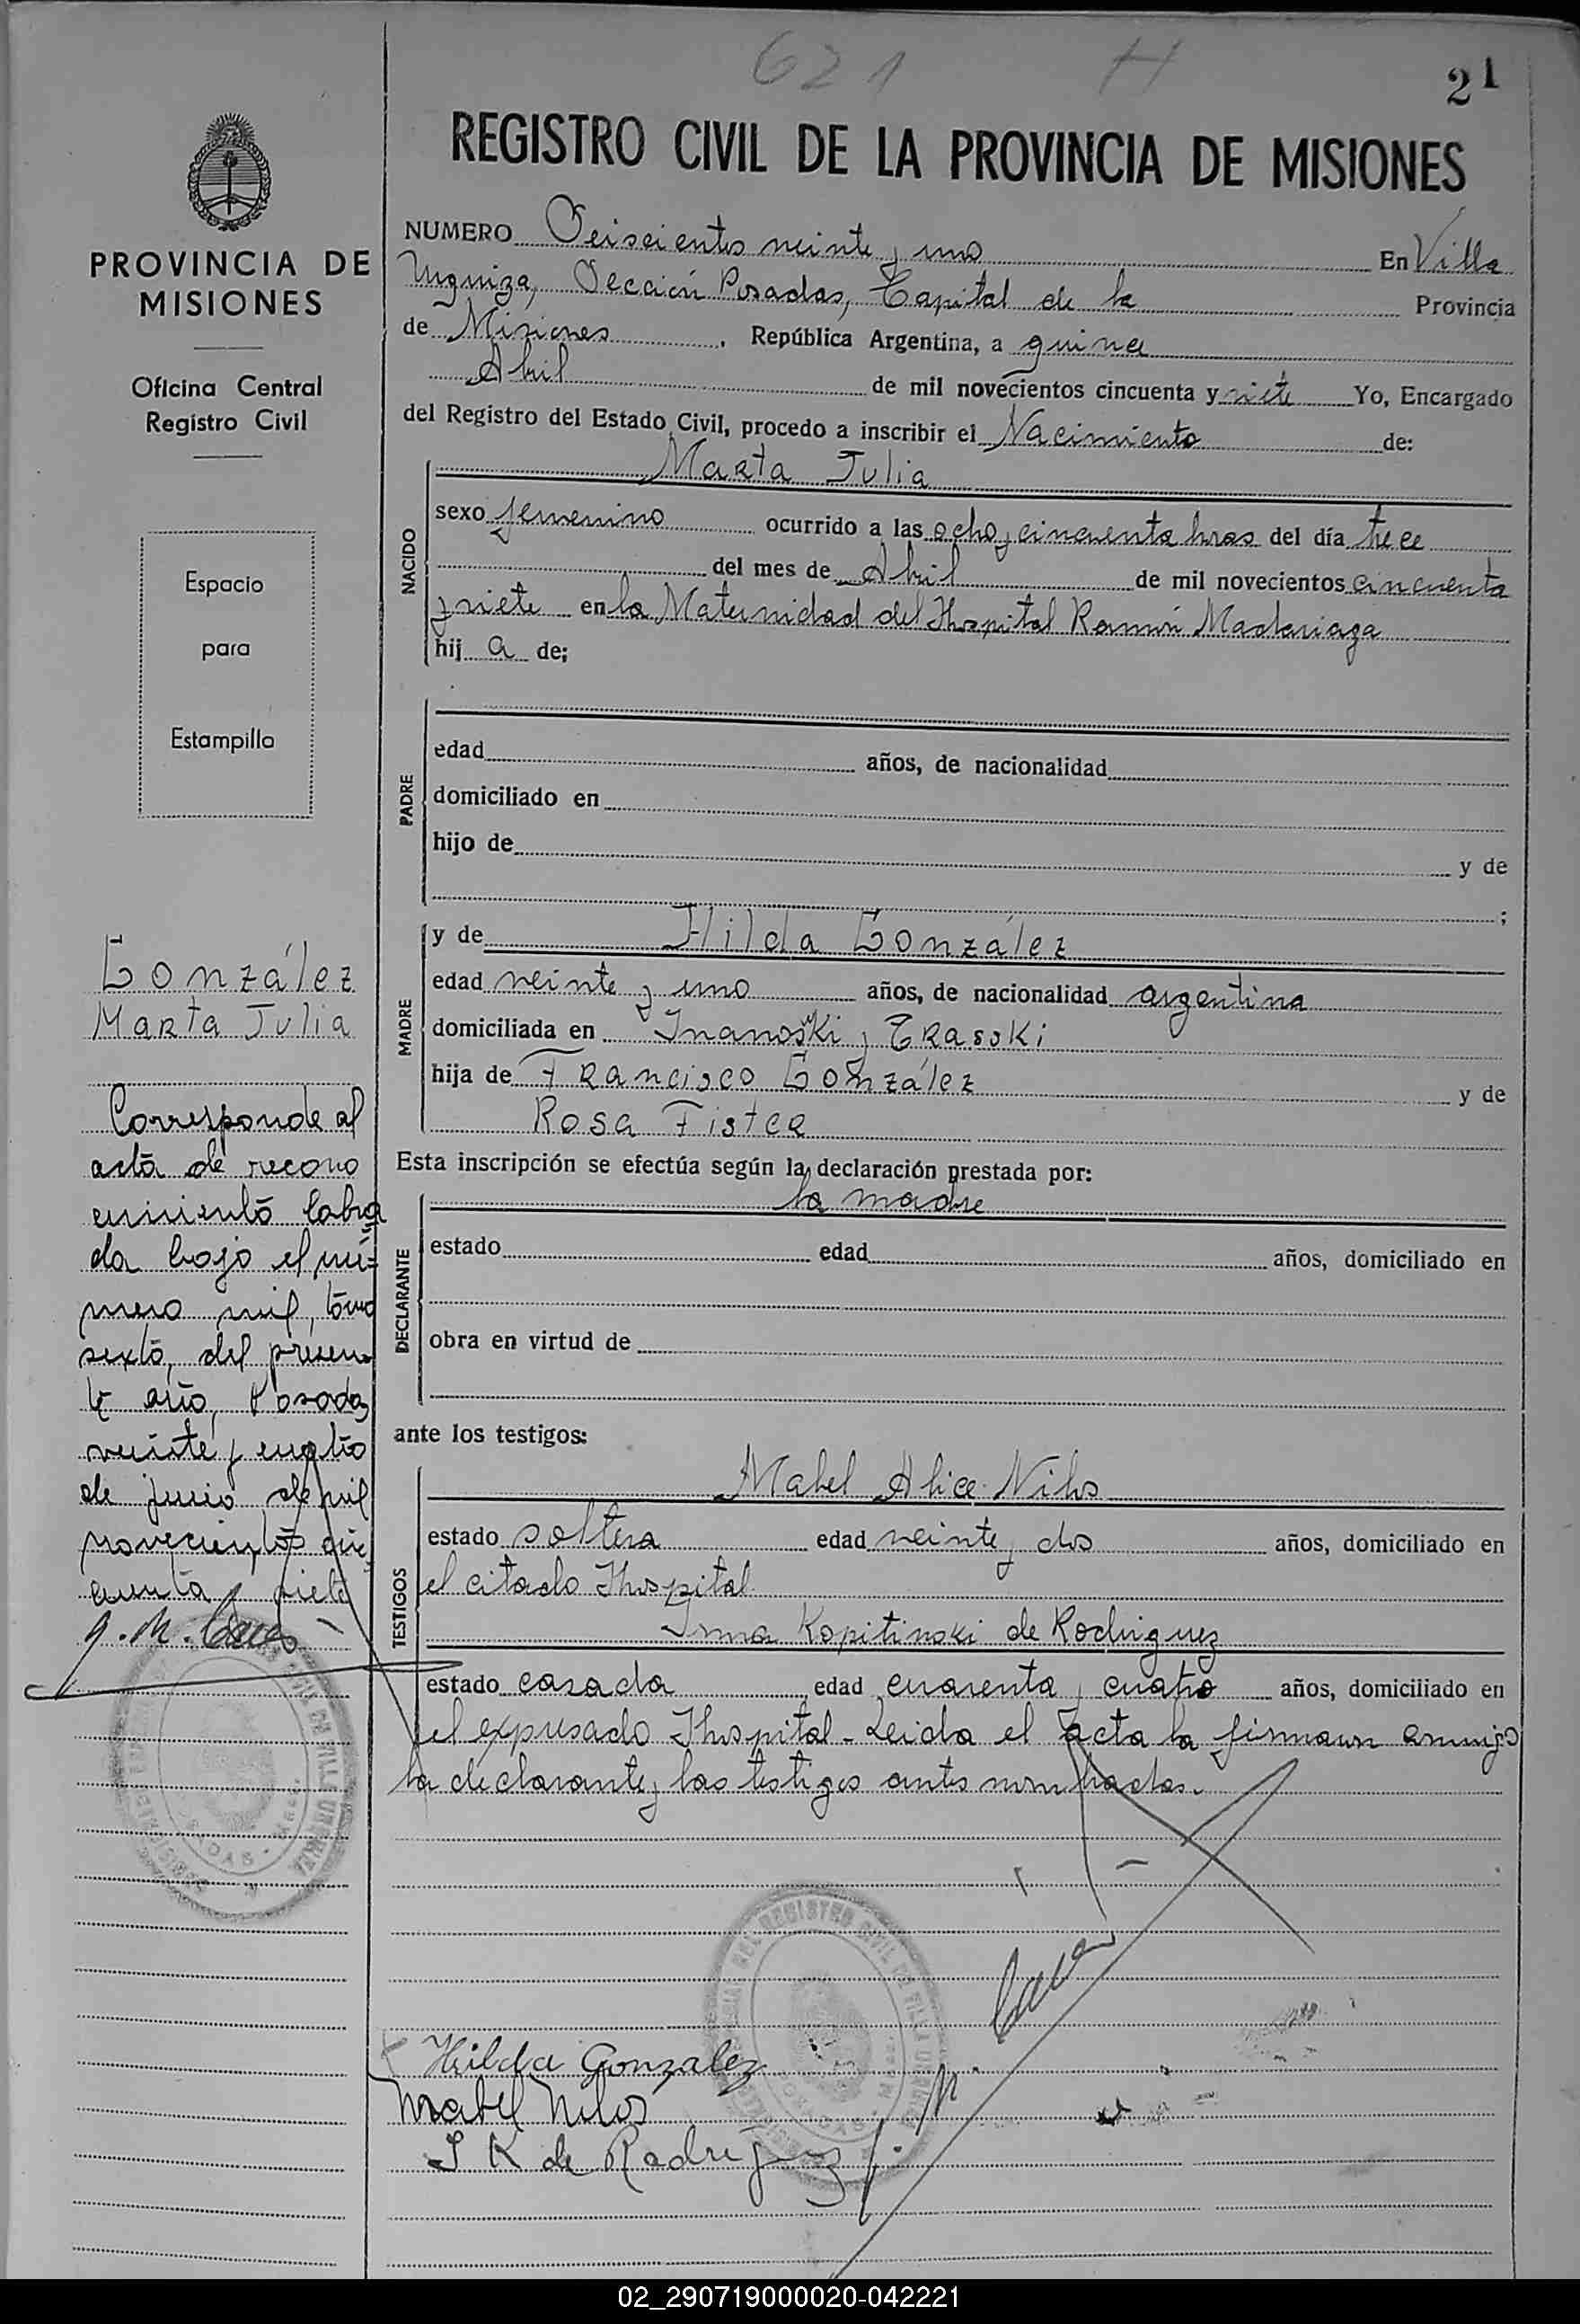 621 H
21
REGISTRO CIVIL DE LA PROVINCIA DE MISIONES
PROVINCIA DE
MISIONES
Oficina Central
Registro Civil
Espacio
para
Estampilla
González
Marta Julia
Corresponde al
acta de recono
cimiento labra
da bajo el nú=
mero mil, tomo
sexto, del presen
te año, Posadas
veinte y cuatro
de junio de mil
novecientos cin
cuenta y siete
NUMERO Seiscientos veinte y uno En Villa
Urquiza, Sección Posadas, Capital de la Provincia
de Misiones, República Argentina, a quince
Abril de mil novecientos cincuenta y siete Yo, Encargado
del Registro del Estado Civil, procedo a inscribir el Nacimiento de:
NACIDO
Marta Julia
sexo femenino ocurrido a las ocho y cincuenta hras del día trece
del mes de Abril de mil novecientos cincuenta
y siete en la Maternidad del Hospital Ramón Madariaga
hij a de;
PADRE
edad años, de nacionalidad
domiciliado en
hijo de y de
;
MADRE
y de Hilda González
edad veinte y uno años, de nacionalidad argentina
domiciliada en
hija de Francisco González y de
Rosa
Esta inscripción se efectúa según la declaración prestada por:
DECLARANTE
la madre
estado edad años, domiciliado en
obra en virtud de
ante los testigos:
TESTIGOS
Mabel Alice Nilos
estado soltera edad veinte y dos años, domiciliado en
el citado Hospital
Irma Kopitinski de Rodriguez
estado casada edad cuarenta y cuatro años, domiciliado en
el expresado Hospital - Leida el acta la firmaron conmigo
la declarante y las testigos antes nombradas.
Hilda Gonzalez
Mabel Nilos
I K de Rodriguez
02_290719000020-042221